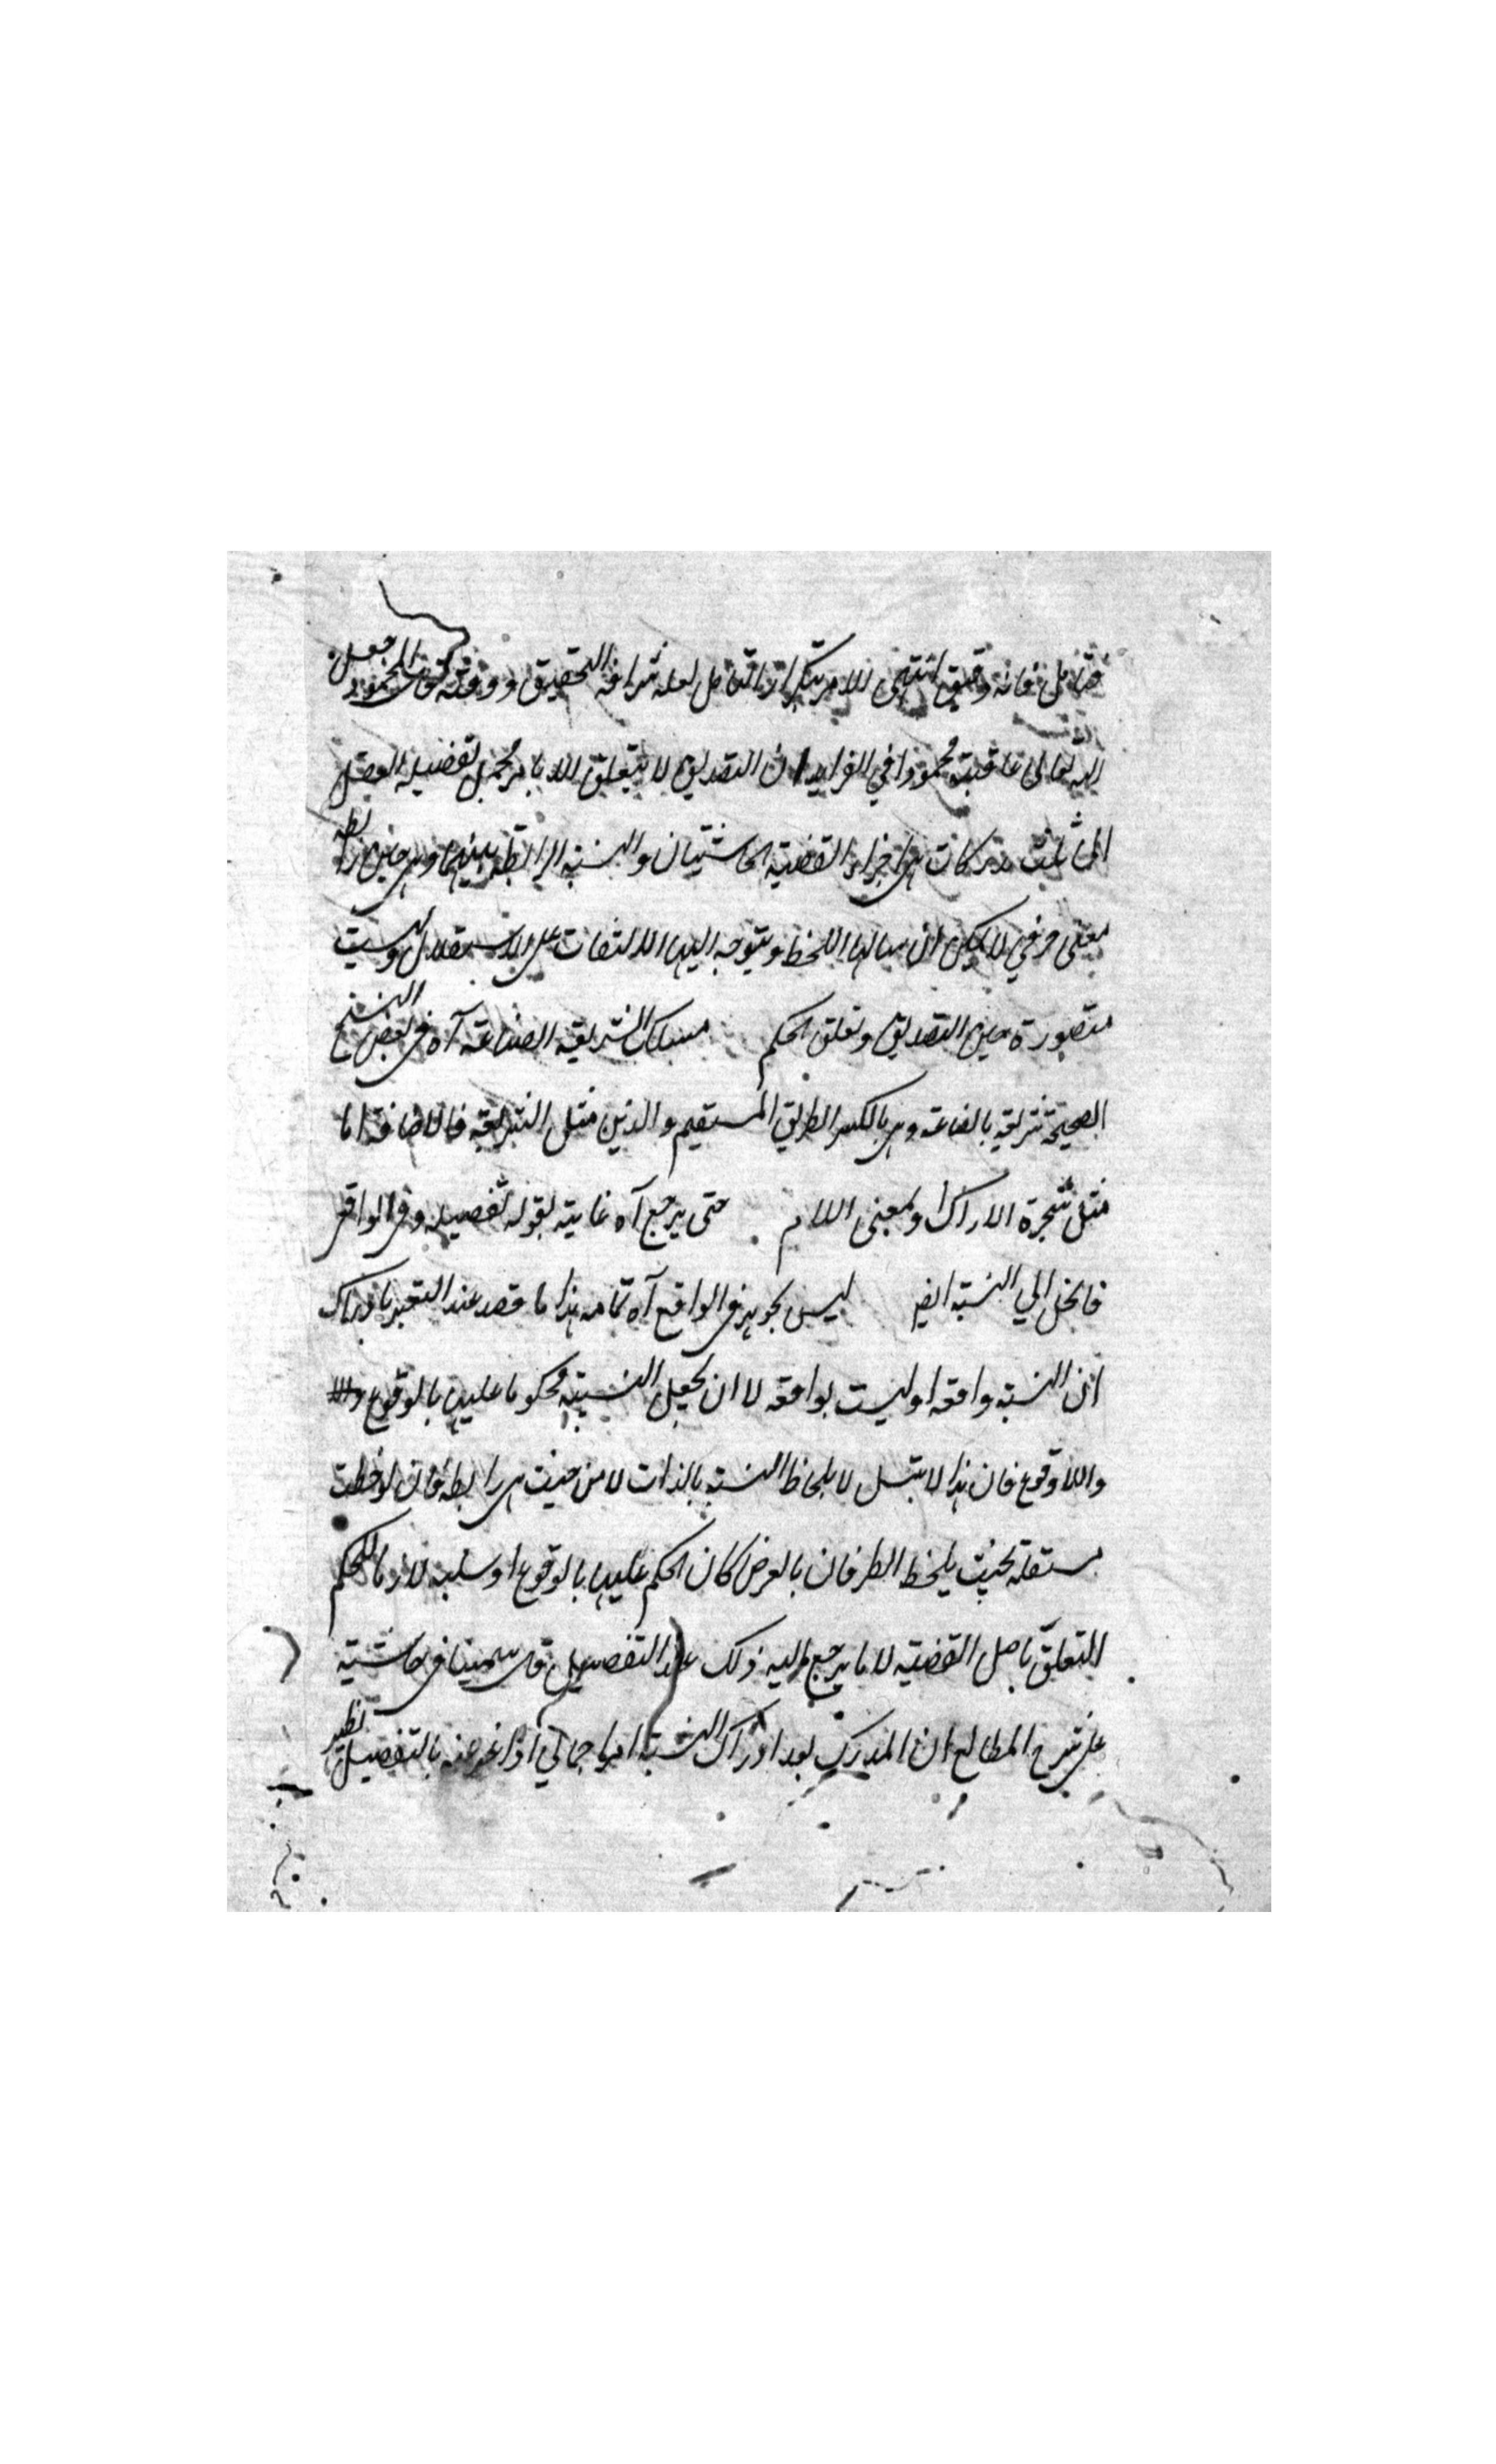 فتأمل فانه دقيق انتهى للامر بتكرار التأمل لعله شرافة التحقيق ووقته قال المحمود جعل
الله تعالى عاقبته محمودا في الفرايد ان التصديق لا يتعلق الا بامر مجمل تفصيله العقل
الى ثلث مدركات هي اجزاء القضية الحاشيتان والنسبة الرابطة بينهما وهي حين رابطه
معنى حرفي لا يمكن ان ينالها اللحظ ويتوجه اليها الالتفات على الاستقلال وليست
متصورة حين التصديق وتعلق الحكم مسلك الشريقية الصناعة آه في بعض النسخ
الصحيحة شريقية بالفاعة وهي بالكسر الطريق المستقيم والدين مثل الشريقة فالاضافة اما
مثل شجرة الاراك او بمعنى اللام حتى يرجع آه غاية لقوله تفصيله وفي الواقع
فانحل الى النسبة ايضا ليس بجوهر في الواقع آه تمامه هذا ما قصد عند التعبير بادراك
ان النسبة واقعة او ليست بواقعة لا ان يجعل النسبة محكوما عليها بالوقوع
واللاوقوع فان هذا لا يتسل لا بلحاظ النسبة بالذات لا من حيث هي رابطة فان لوحظت
مستقلة بحيث يلحظ الطرفان بالعرض كان الحكم عليها بالوقوع او سلبه لازما للحكم
المتعلق باصل القضية لا ما يرجع اليه ذلك عند التفصيل قال سمينا في حاشية
على شرح المطالع ان المدرك بعد ادراك النسبة امر اجمالي اذا عبر عنه بالتفصيل نظير